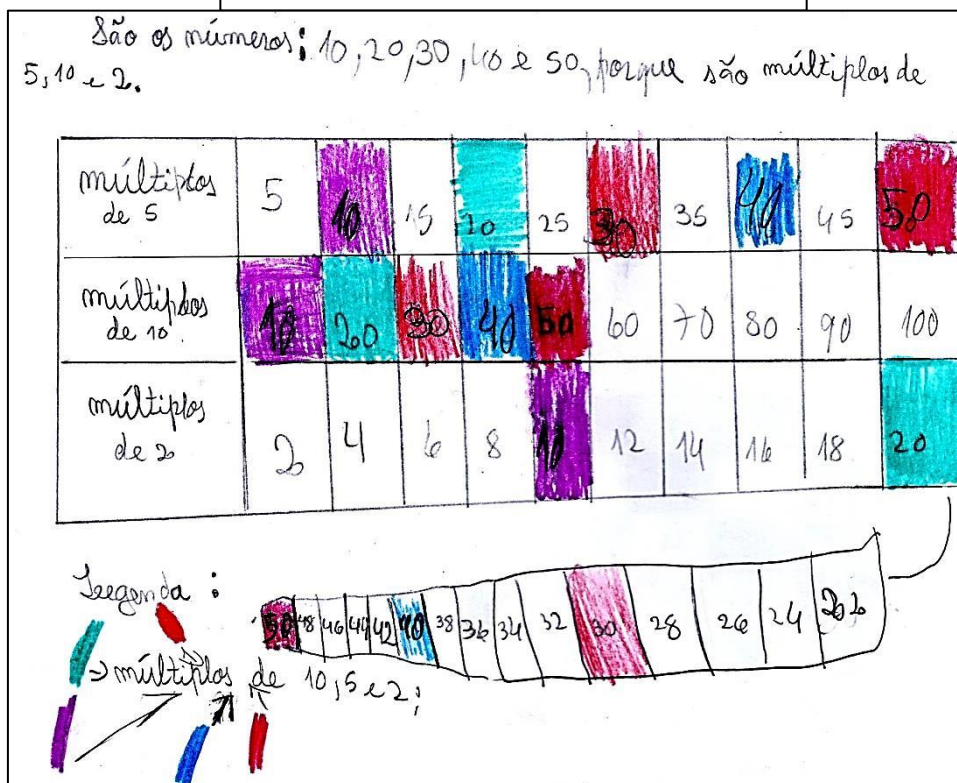 São os números: 10, 20, 30, 40 e 50, porque são múltiplos de
5, 10 e 2.
múltiplos de 5 5 10 15 20 25 30 35 40 45 50
múltiplos de 10 10 20 30 40 50 60 70 80 90 100
múltiplos de 2 2 4 6 8 10 12 14 16 18 20
Legenda:
50 48 46 44 42 40 38 36 34 32 30 28 26 24 22
→ múltiplos de 10, 5 e 2;